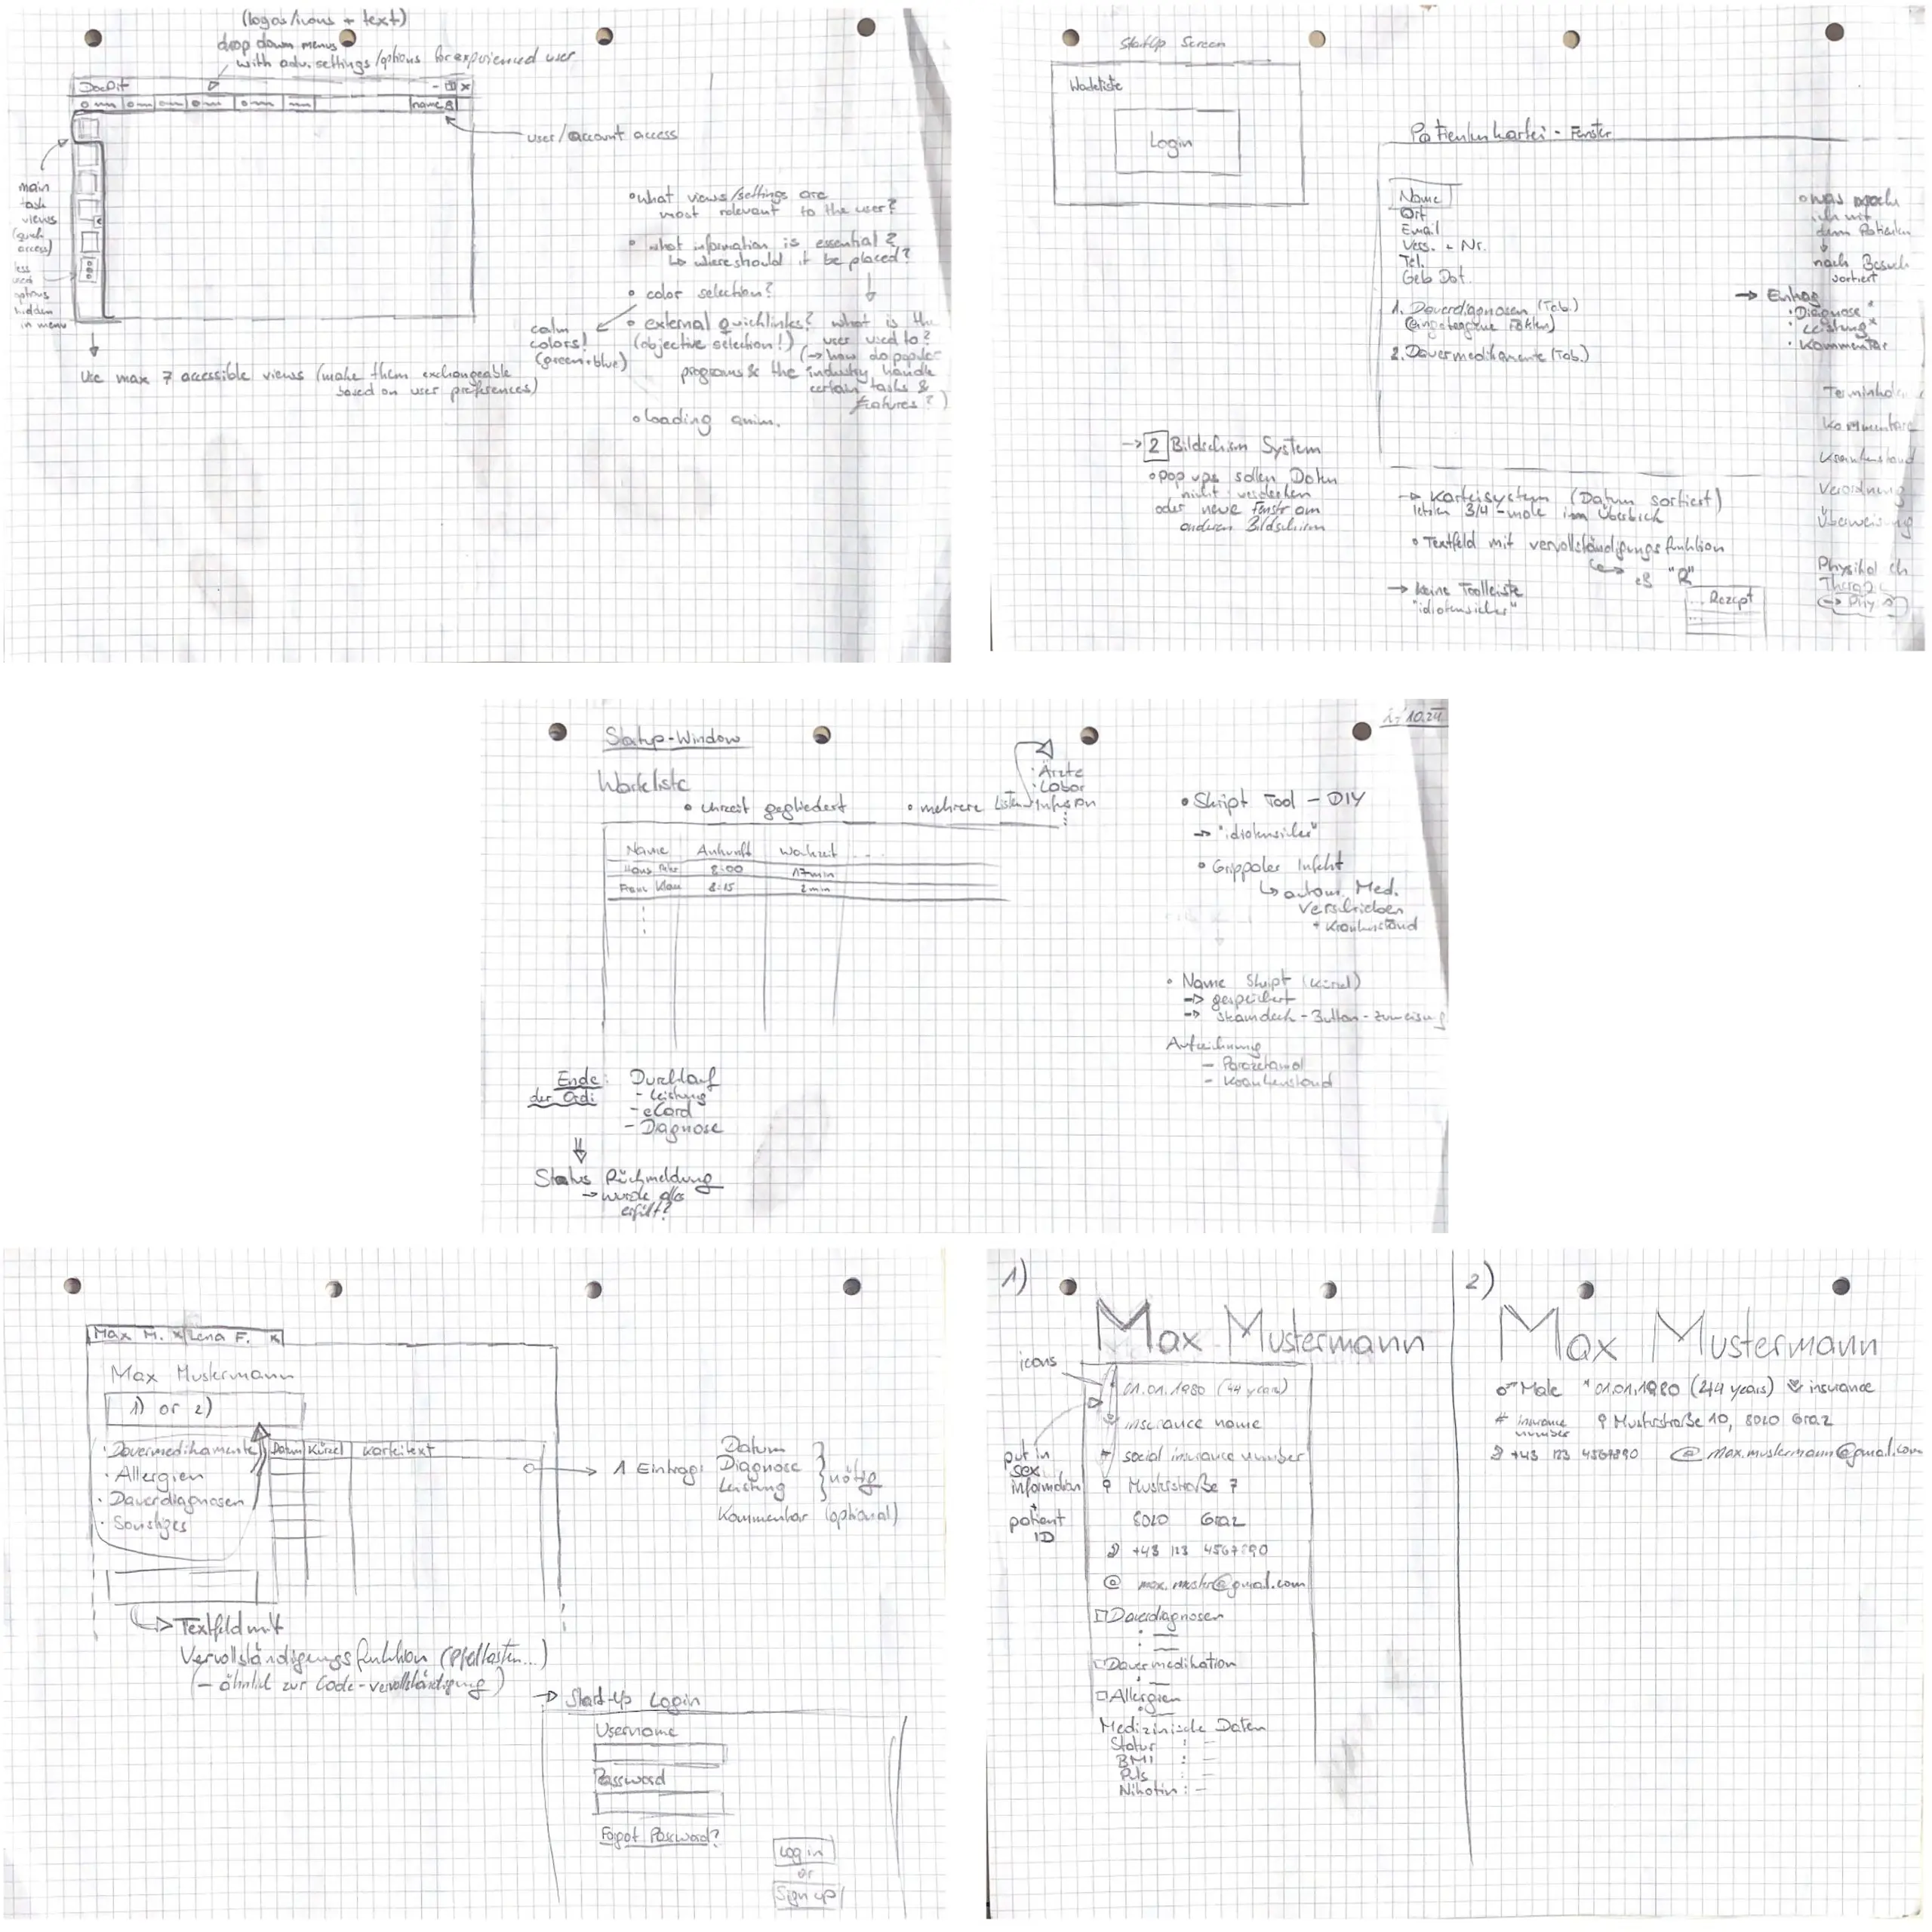 (logos/icons + text)
drop down menus
with adv. settings/options for experienced user
DocPit
name
user/account access
main
task
views
(quick
access)
less
used
options
hidden
in menu
Use max 7 accessible views (make them exchangeable
based on user preferences)
• what views/settings are
most relevant to the user?
• what information is essential?
↳ where should it be placed?
• color selection?
calm
colors!
(green+blue)
• external quicklinks?
(objective selection!)
what is the
user used to?
(→ how do popular
programs & the industry handle
certain tasks &
features?)
• loading anim.
StartUp Screen
Warteliste
Login
Patientenkartei - Fenster
Name
Ort
Email
Vers. + Nr.
Tel.
Geb Dat.
1. Dauerdiagnosen (Tab.)
2. Dauermedikamente (Tab.)
• was mach
ich mit
dem Patienten
nach Besuch
sortiert
→ Eintrag
• Diagnose*
• Leistung*
• Kommentar
Kommentare
Krankenstand
Verordnung
Überweisung
→ 2 Bildschirm System
• pop ups sollen Daten
nicht verdecken
oder neue Fenster am
anderen Bildschirm
→ Karteisystem (Datum sortiert)
letzten 3/4-mole im Überblick
• Textfeld mit vervollständigungsfunktion
"R"
Rezept
→ keine Toolleiste
"idiotensicher"
10.24
Startup-Window
Warteliste
• Uhrzeit gegliedert
• mehrere Listen
• Ärzte
• Labor
• Infusion
Name Ankunft Wartezeit ...
8:00 17min
Franz Klau 8:15 2min
• Skript Tool - DIY
→ "idiotensicher"
• Grippaler Infekt
↳ autom. Med.
verschrieben
+ Krankenstand
• Name Skript (Kürzel)
→ gespeichert
→ steamdeck-Button-zuweisung
Aufzeichnung
- Parazetamol
- Krankenstand
Ende: Durchlauf
der Ordi
- Leistung
- eCard
- Diagnose
Status Rückmeldung
→ wurde alles
erfüllt?
Max M. x Lena F. x
Max Mustermann
1) or 2)
• Dauermedikamente
• Allergien
• Dauerdiagnosen
• Sonstiges
Datum Kürzel Karteitext
→ 1 Eintrag:
Datum
Diagnose
Leistung
nötig
Kommentar (optional)
Textfeld mit
Vervollständigungsfunktion (Pfeiltasten...)
(- ähnlich zur Code-vervollständigung)
→ Start-Up Login
Username
Password
Forgot Password?
Log in
or
Sign up
1)
Max Mustermann
icons
01.01.1980 (44 years)
insurance name
# social insurance number
put in
sex
information
+
patient
ID
Musterstraße 7
8020 Graz
+43 123 4567890
@ max.muster@gmail.com
Dauerdiagnosen
Dauermedikation
Allergien
Medizinische Daten
Statur : -
BMI : -
Puls : -
Nikotin : -
2)
Max Mustermann
♂ Male * 01.01.1980 (44 years) insurance
# insurance
number
Musterstraße 10, 8020 Graz
+43 123 4567890 @ max.mustermann@gmail.com